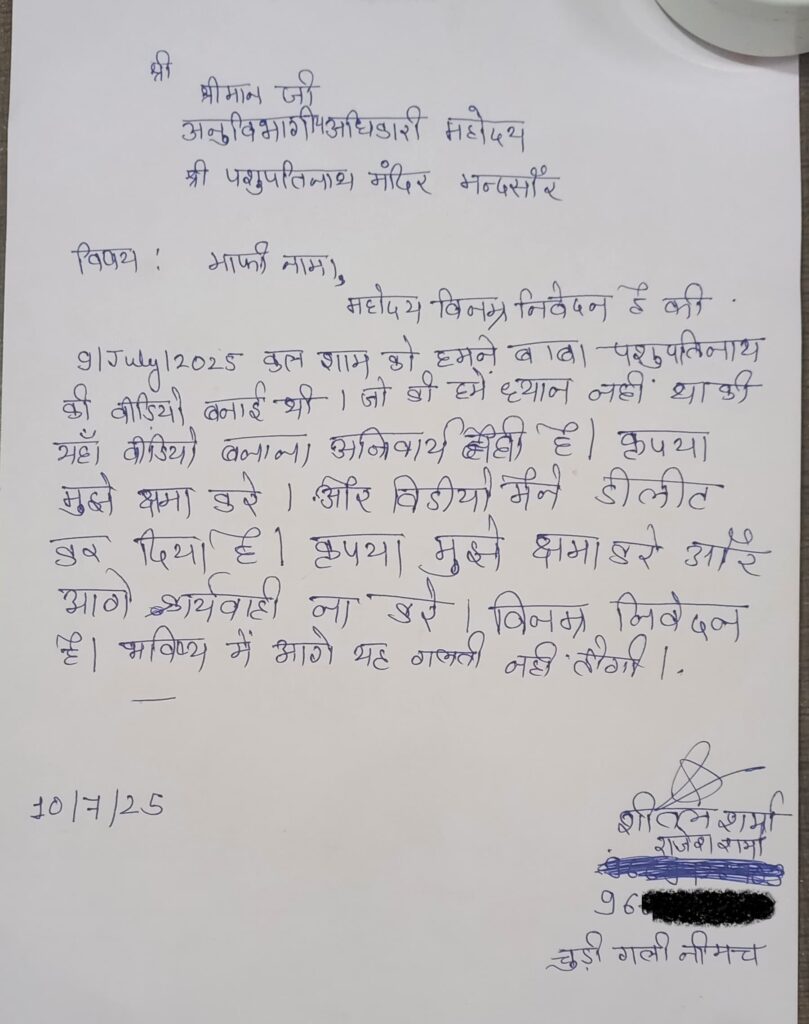 श्री
श्रीमान जी
अनुविभागीयअधिकारी महोदय
श्री पशुपतिनाथ मंदिर मन्दसौर
विषय : माफी नामा,
महोदय विनम्र निवेदन है की
9/July/2025 कल शाम को हमने बाबा पशुपतिनाथ
की वीडियो बनाई थी । जो की हमें ध्यान नहीं था की
यहाँ वीडियो बनाना अनिवार्य नहीं है। कृपया
मुझे क्षमा करे । और विडीयो मैंने डीलीट
कर दिया है। कृपया मुझे क्षमा करे और
आगे कार्यवाही ना करे । विनम्र निवेदन
है। भविष्य में आगे यह गलती नही होगी ।
10/7/25
शीतल शर्मा
राजेश शर्मा
96
चुड़ी गली नीमच